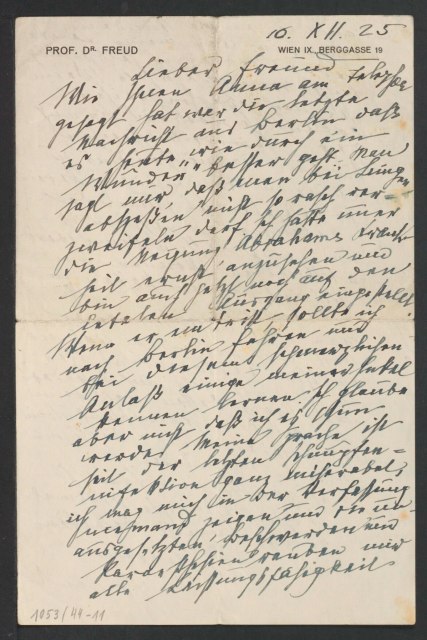 10. XII. 25
PROF. DR. FREUD
WIEN IX., BERGGASSE 19
Lieber Freund
Wie Ihnen Anna am Telephon
gesagt hat war die letzte
Nachricht aus Berlin daß
es heute „wie durch ein
Wunder" besser geht. Man
sagt mir, daß man bei Lungen
abszeßen nicht so rasch ver-
zweifeln darf. Ich hatte immer
die Neigung Abrahams Krank-
heit ernst anzusehen und
bin auch jetzt noch auf den
letalen Ausgang eingestellt.
Wenn er eintritt, sollte ich
nach Berlin fahren und
bei diesem schmerzlichen
Anlaß einige meiner Enkel
kennen lernen. Ich glaube
aber nicht daß ich es tun
werde. Meine Sprache ist
seit der letzten Schnupfen=
infektion ganz miserabel,
ich mag mich in der Verfassung
niemand zeigen und die un
ausgesetzten Beschwerden und
Parästhesien rauben mir
alle Leistungsfähigkeit.
1053/44-11